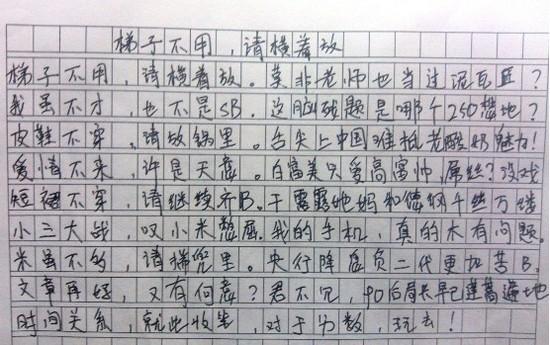 梯子不用，请横着放
梯子不用，请横着放。莫非老师也当过泥瓦匠？
我虽不才，也不是SB。这脑残题是哪个250想地？
皮鞋不穿，请放锅里。舌尖上中国难抵老酸奶魅力！
爱情不来，许是天意。白富美只爱高富帅，屌丝？没戏
短裙不穿，请继续齐B。干露露她妈和德纲千丝万缕
小三大战，叹小米憋屈。我的手机，真的木有问题。
米虽不够，请揣兜里。央行降息负二代更加苦B。
文章再好，又有何意？君不见，90后局长早已遍地
时间关系，就此收笔，对于分数，玩去！